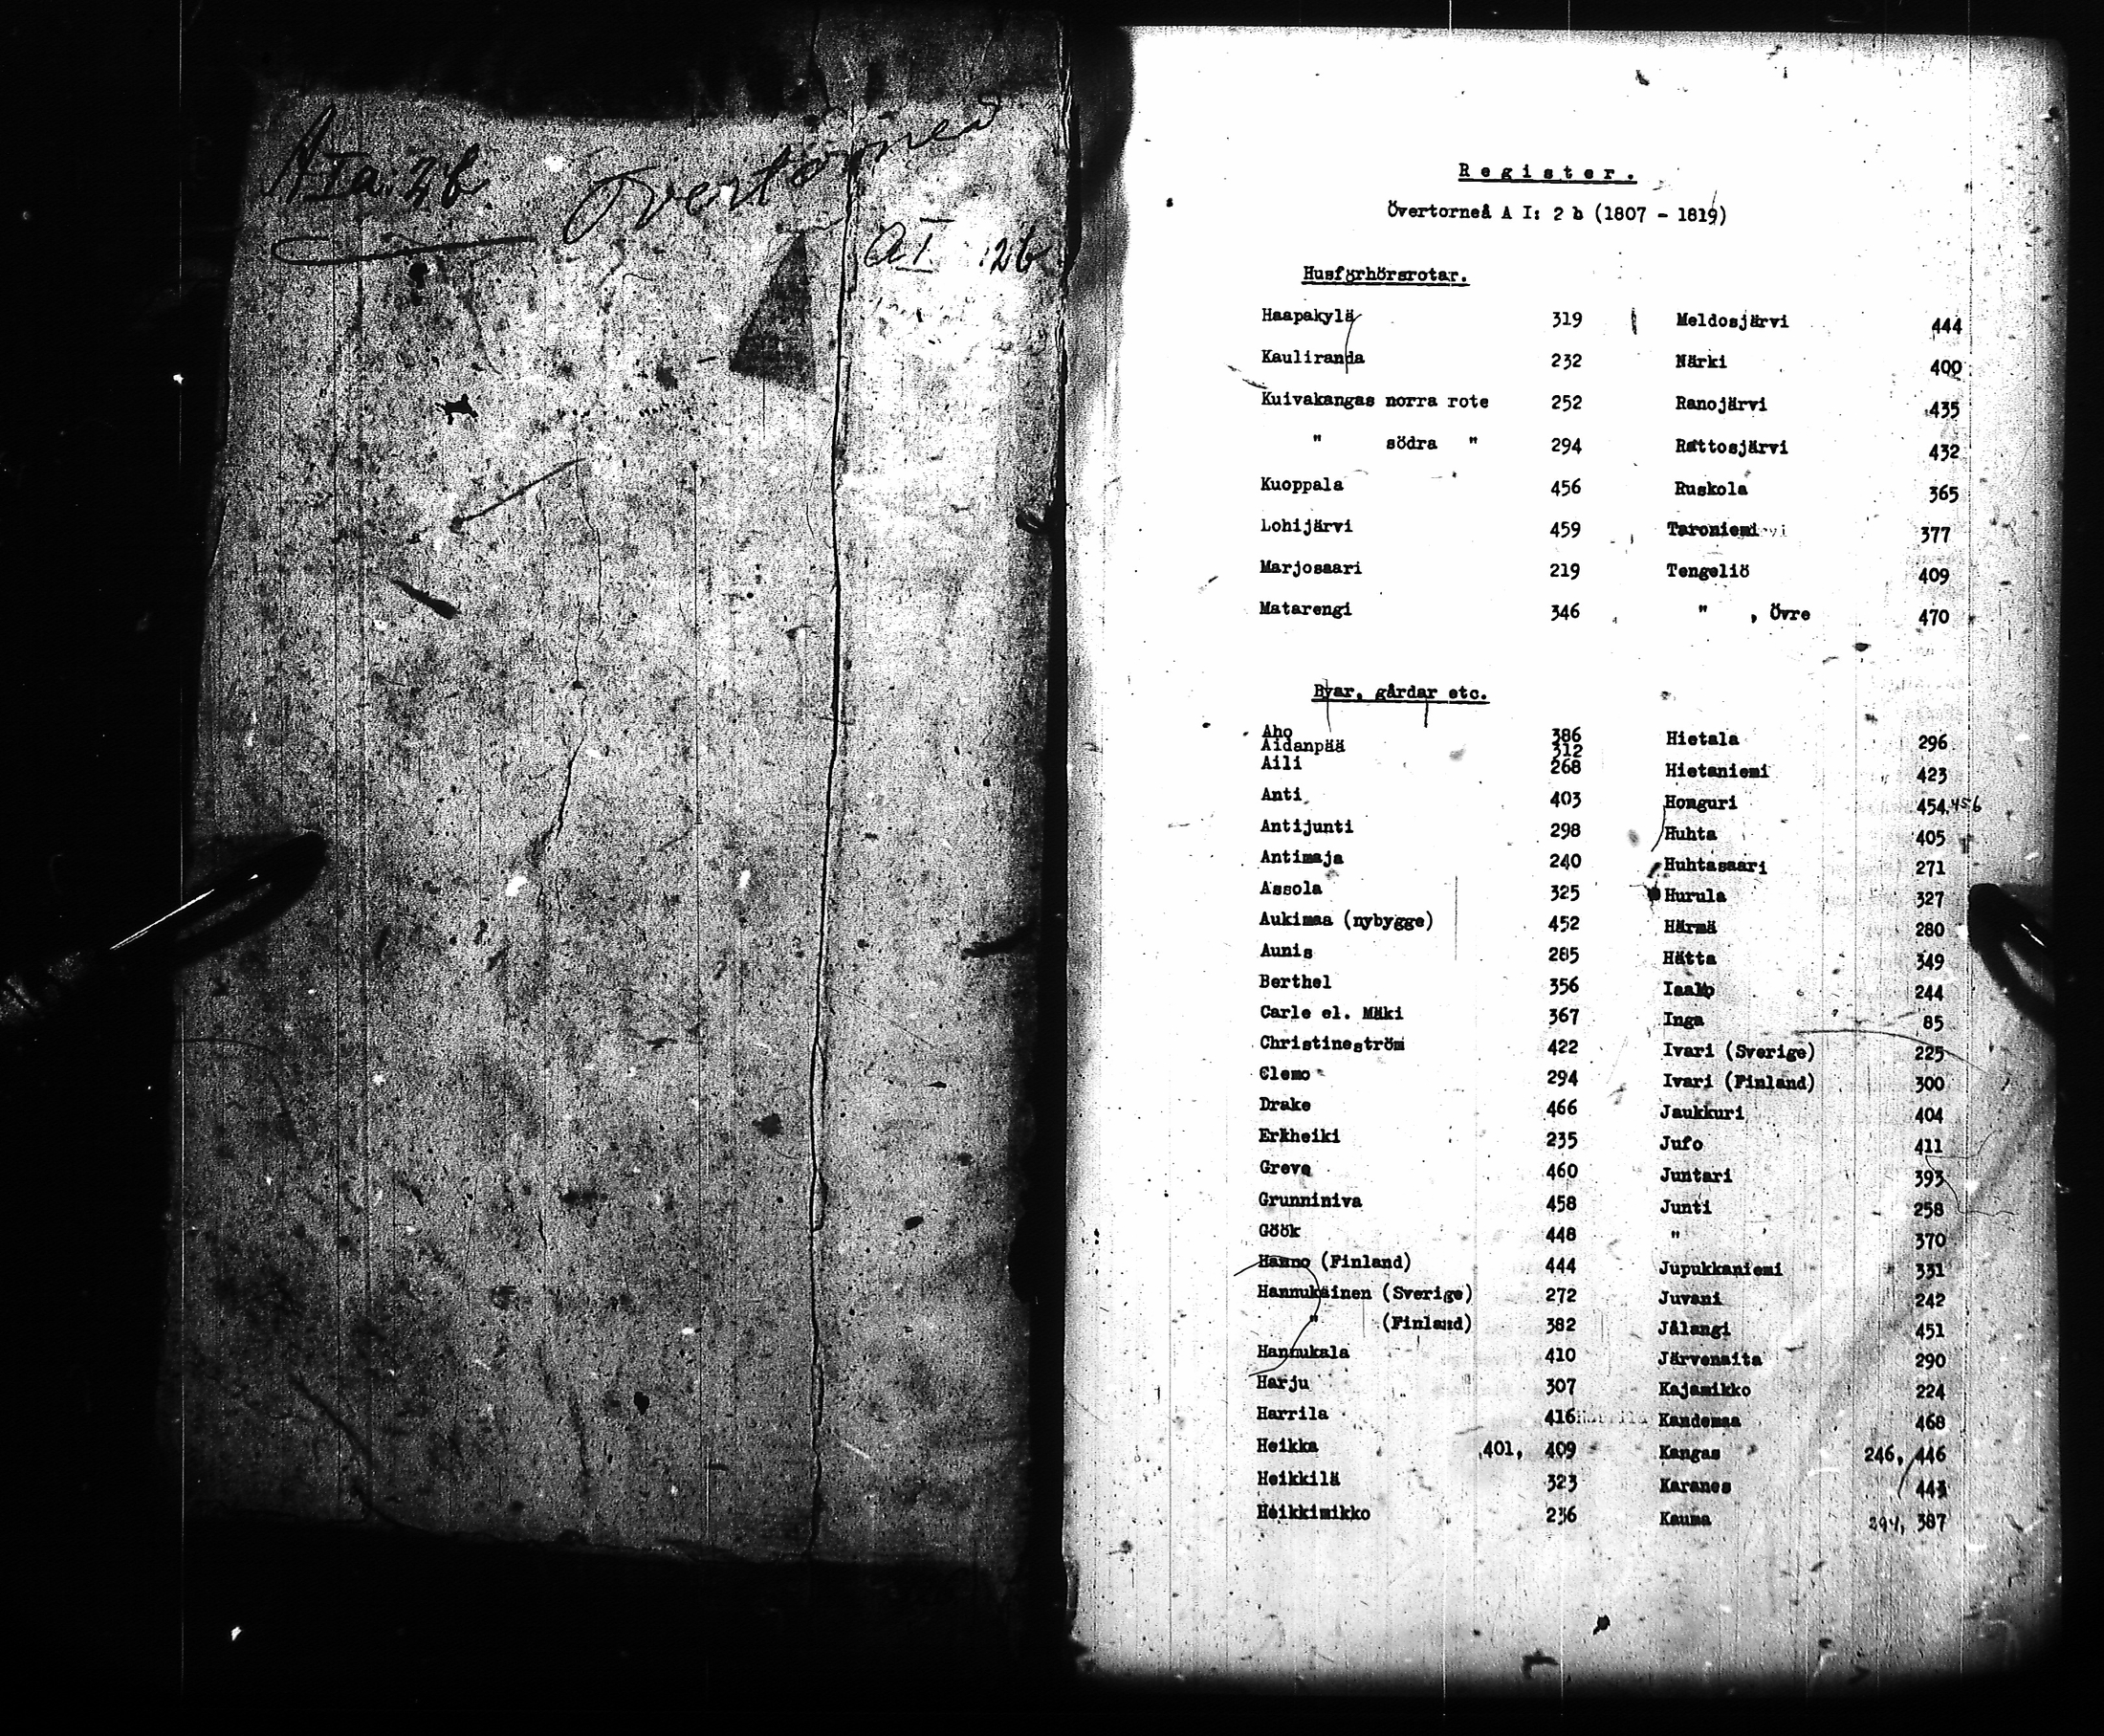 A Ia: 2b. Övertorneå
A I :2b
Register.
Övertorneå A I: 2 b (1807 - 1819)
Husförhörsrotar.
Haapakylä 319
Kauliranda 232
Kuivakangas norra rote 252
" södra " 294
Kuoppala 456
Lohijärvi 459
Marjosaari 219
Matarengi 346
Meldosjärvi 444
Närki 400
Ranojärvi 435
Rattosjärvi 432
Ruskola 365
Taroniemi 377
Tengeliö 409
" , Övre 470
Byar, gårdar etc.
Aho 386
Aidanpää 312
Aili 268
Anti 403
Antijunti 298
Antimaja 240
Assola 325
Aukimaa (nybygge) 452
Aunis 285
Berthel 356
Carle el. Mäki 367
Christineström 422
Clemo 294
Drake 466
Erkheiki 235
Greve 460
Grunniniva 458
Göök 448
Hanno (Finland) 444
Hannukainen (Sverige) 272
" (Finland) 382
Hannukala 410
Harju 307
Harrila 416
Heikka 401, 409
Heikkilä 323
Heikkimikko 236
Hietala 296
Hietaniemi 423
Honguri 454, 456
Huhta 405
Huhtasaari 271
Hurula 327
Härmä 280
Hätta 349
Isako 244
Inga 85
Ivari (Sverige) 225
Ivari (Finland) 300
Jaukkuri 404
Jufo 411
Juntari 393
Junti 258
" 370
Jupukkaniemi 331
Juvani 242
Jålangi 451
Järvenaita 290
Kajamikko 224
Kandemaa 468
Kangas 246, 446
Karanes
Kauma 294, 387